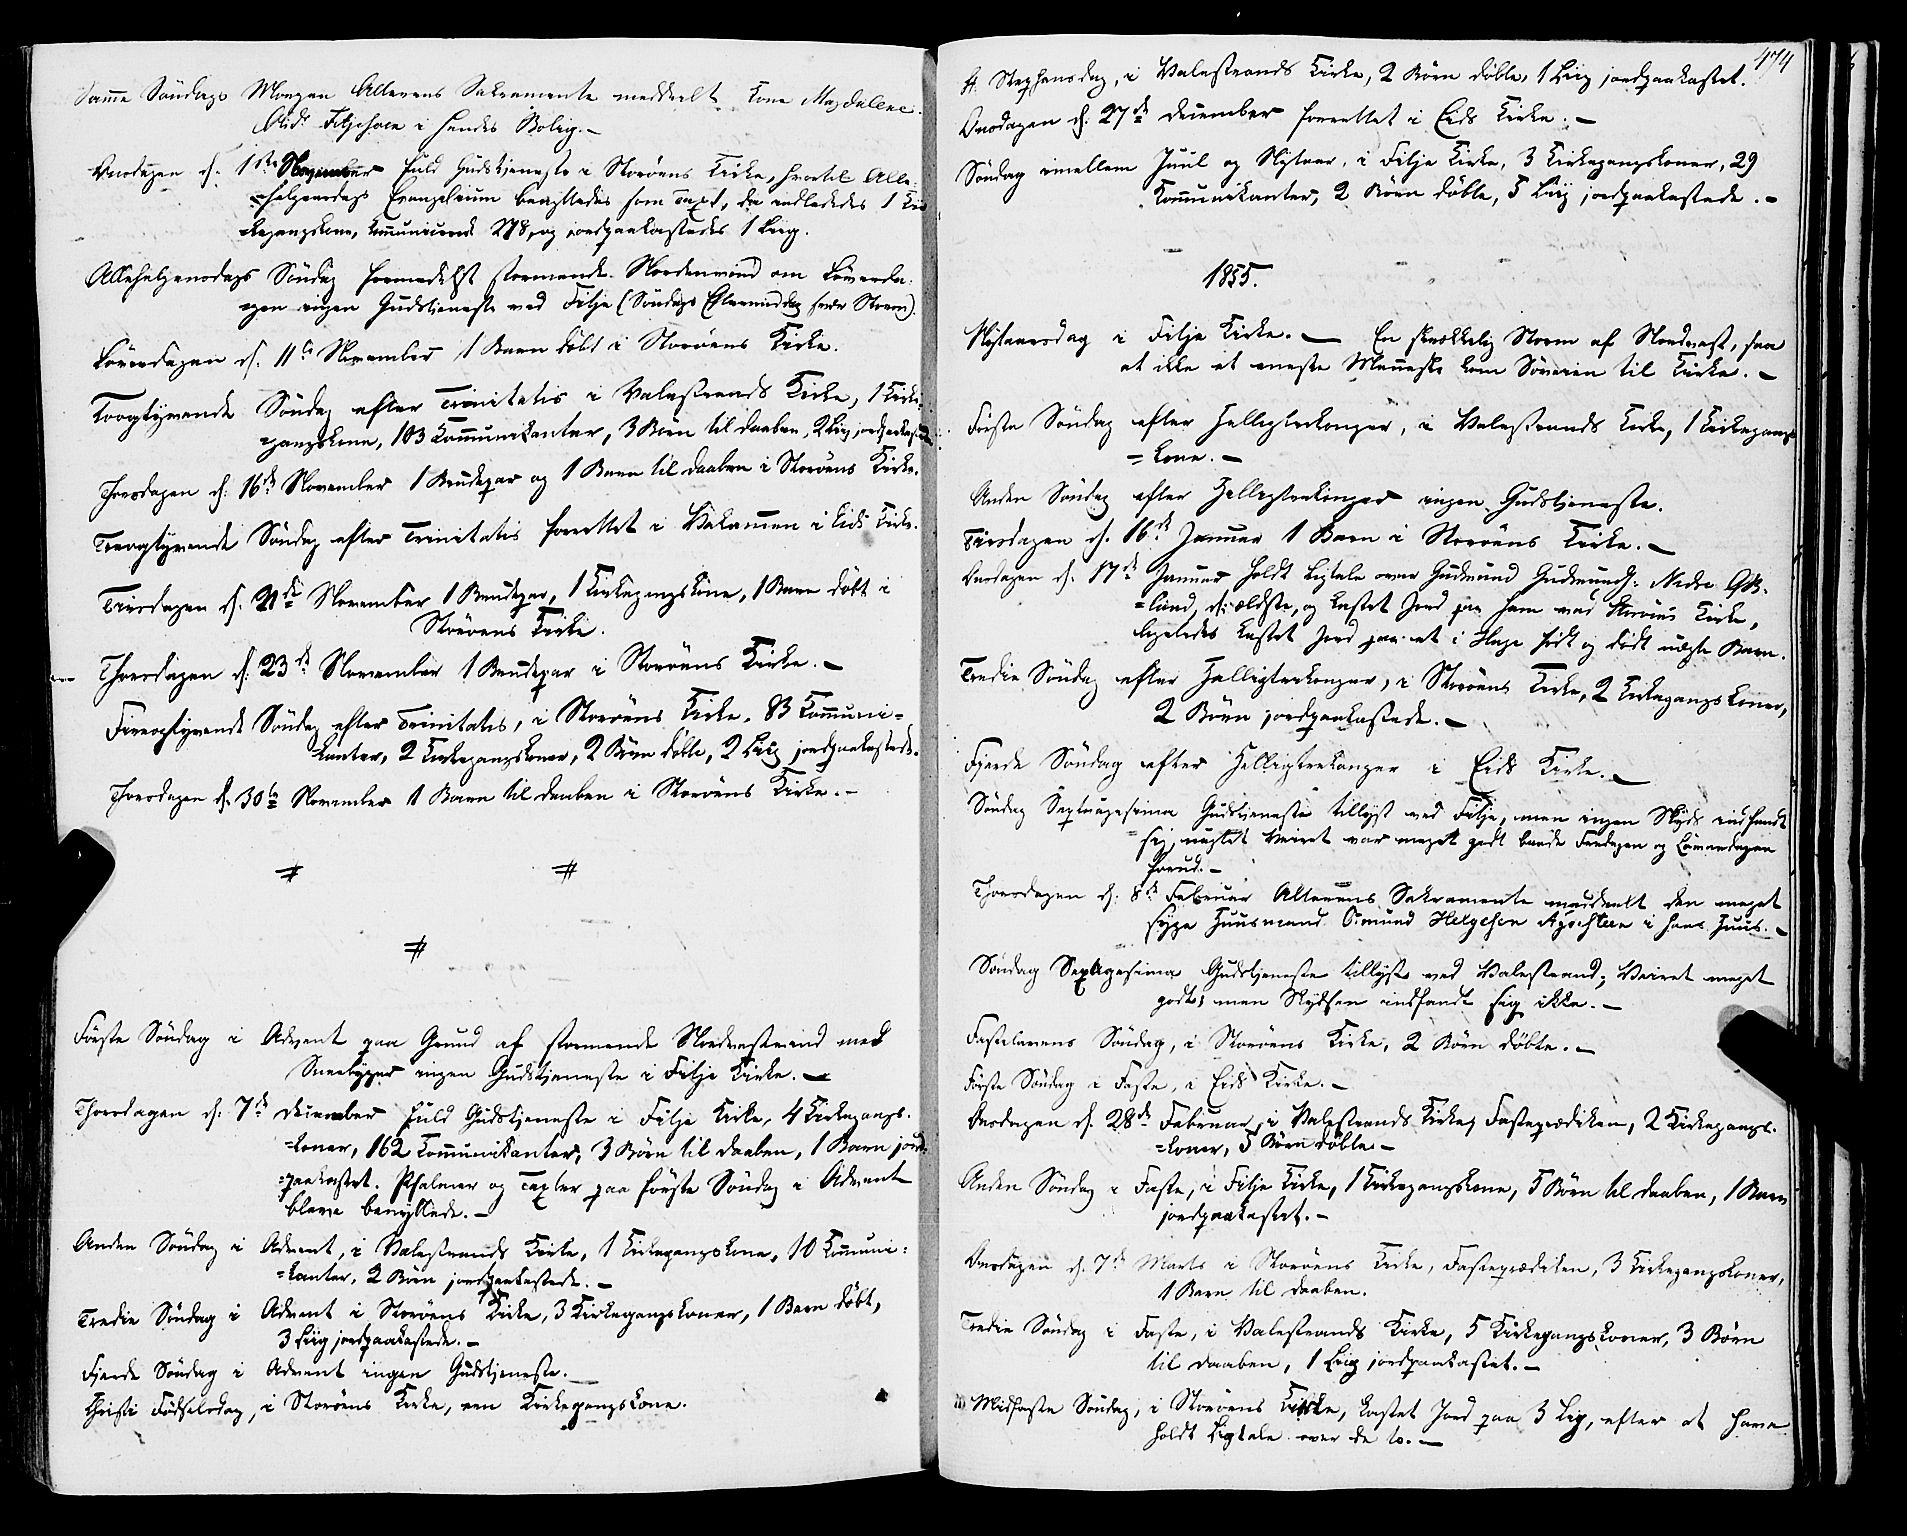 Samme Søndags Morgen Alterens Sakramente meddeelt Kone Magdalene
Fitjehoen i hendes Bolig.-
Onsdagen d: 1ste November fuld Gudstjeneste i Storøens Kirke, hvortil Alle-
=helgensdags Evangelium benyttedes som Text, da indlededes 1 Kir
=kegangskone, 278, og jordpaakastedes 1 Liig.
Allehelgensdags Søndag formedelst stormende Nordenvind om Løverda-
gen ingen Gudstjeneste ved Fitje (Søndags Eftermiddag svær Storm).
Løverdagen d: 11te November 1 Barn døbt i Storøens Kirke.
Toogtyvende Søndag efter Trinitatis i Valestrands Kirke, 1 Kirke-
gangskone, 103 Kommunikanter, 3 Børn til Daaben, 2 Liig jordpaakastede
Thorsdagen d: 16de November 1 Brudepar og 1 Barn til Daaben i Storøens Kirke.
Treogtyvende Søndag efter Trinitatis forrettet i Vakancen i Eids Kirke.
Tirsdagen d: 21de November 1 Brudepar, 1 Kirkegangskone, 1 Barn døbt i
Storøens Kirke.
Thorsdagen d: 23de November 1 Brudepar i Storøens Kirke.-
Fireogtyvende Søndag efter Trinitatis, i Storøens Kirke, 83 Kommuni=
kanter, 2 Kirkegangskoner, 2 Børn døbte, 2 Liig jordpaakastede.
Thorsdagen d. 30te November 1 Barn til Daaben i Storøens Kirke.-
# #
#
Første Søndag i Advent paa Grund af stormende Nordvestvind med
Sneebyger ingen Gudstjeneste i Fitje Kirke.-
Thorsdagen d: 7de December fuld Gudstjeneste i Fitje Kirke, 4 Kirkegangs-
=koner, 162 Kommunikanter, 3 Børn til Daaben, 1 Barn jord-
=paakastet. Psalmer og Texter paa første Søndag i Advent
bleve benyttede.-
Anden Søndag i Advent, i Valestrands Kirke, 1 Kirkegangskone, 10 Kommuni=
=kanter, 2 Børn jordpaakastede.-
Tredie Søndag i Advent i Storøens Kirke, 3 Kirkegangskoner, 1 Barn døbt,
3 Liig jordpaakastede.-
Fjerde Søndag i Advent ingen Gudstjeneste.-
Christi Fødselsdag, i Storøens Kirke, een Kirkegangskone.
474
St. Stephansdag, i Valestrands Kirke, 2 Børn døbte, 1 Liig jordpaakastet.
Onsdagen d: 27de December forrettet i Eids Kirke.-
Søndag imellem Juul og Nytaar, i Fitje Kirke, 3 Kirkegangskoner, 29
Kommunikanter, 2 Børn døbte, 5 Liig jordpaakastede.-
1855.
Nytaarsdag i Fitje Kirke.- En skrækkelig Storm af Nordvest, saa
at ikke et eneste Menneske kom Søveien til Kirke.-
Første Søndag efter Helligtrekonger, i Valestrands Kirke, 1 Kirkegangs
=kone.-
Anden Søndag efter Helligtrekonger ingen Gudstjeneste.
Tirsdagen d. 16de Januar 1 Barn i Storøens Kirke.-
Onsdagen d: 17de Januar holdt Ligtale over Gudmund Gudmunds: Nedre
=land, d: ældste, og kastet Jord paa ham ved Storøens Kirke,
ligeledes kastet Jord paa et i Hage født og dødt uægte Barn.
Tredie Søndag efter Helligtrekonger, i Storøens Kirke, 2 Kirkegangskoner,
2 Børn jordpaakastede.-
Fjerde Søndag efter Helligtrekonger i Eids Kirke.-
Søndag Septuagesima Gudstjeneste tillyst ved Fitje, men ingen Skyds indfandt
sig, uagtet Veiret var meget godt baade Fredagen og Løverdagen
forud.-
Thorsdagen d: 8de Februar Alterens Sakramente meddeelt den meget
syge Huusmand Osmund Helgesen i hans Huus.-
Søndag Sexagesima Gudstjeneste tillyst ved Valestrand; Veiret meget
godt; men Skydsen indfandt sig ikke.-
Fastelavens Søndag, i Storøens Kirke, 2 Børn døbte.-
Første Søndag i Faste, i Eids Kirke.-
Onsdagen d. 28de Februar, i Valestrands Kirke, Fasteprædiken, 2 Kirkegangs-
=koner, 5 Børn døbte.-
Anden Søndag i Faste, i Fitje Kirke, 1 Kirkegangskone, 5 Børn til Daaben, 1 Barn
jordpaakastet.-
Onsdagen d. 7de Marts i Storøens Kirke, Fasteprædiken, 3 Kirkegangskoner,
1 Barn til Daaben.
Tredie Søndag i Faste, i Valestrands Kirke, 5 Kirkegangskoner, 3 Børn
til Daaben, 1 Liig jordpaakastet.-
Midfaste Søndag, i Storøens Kirke, kastet Jord paa 3 Lig, efter at have
holdt Ligtale over de to.-